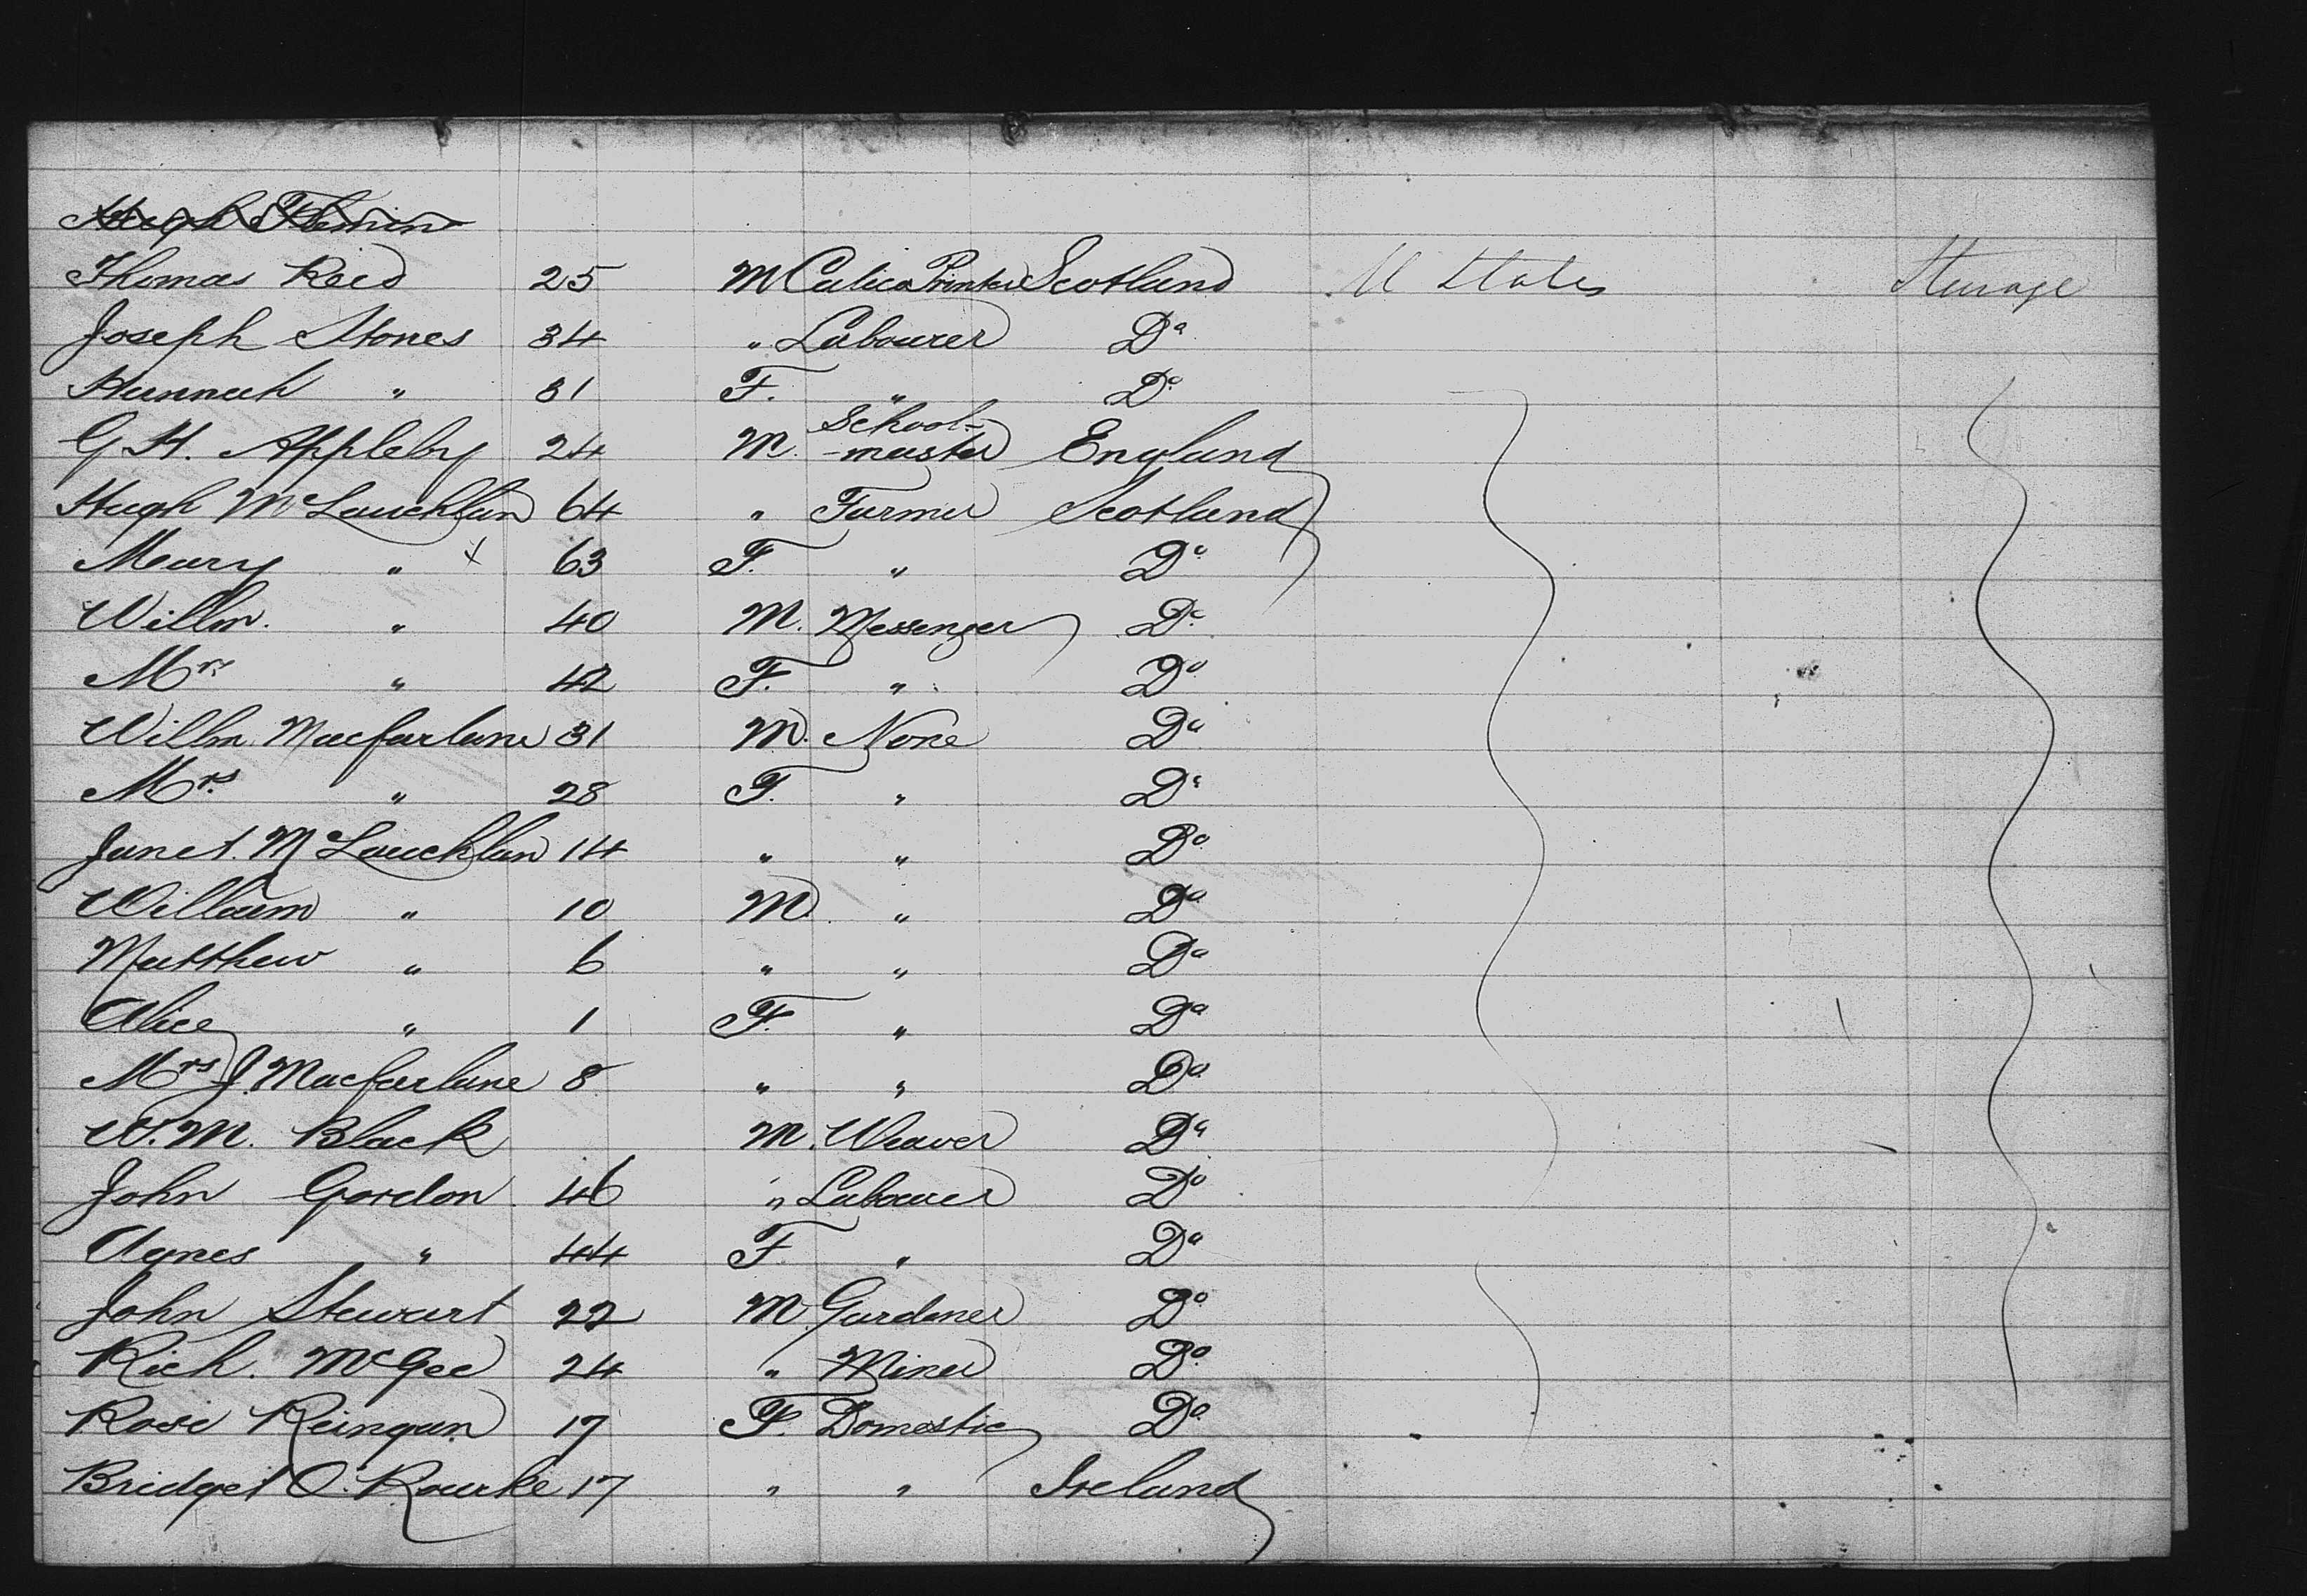 Hugh Flemin
Thomas Reid 25 M Calico Printer Scotland U States Sterage
Joseph Stones 34 " Labourer Do
Hannah " 31 F. " Do
G H. Appleby 24 M. School-master England
Hugh McLauchlan 64 " Farmer Scotland
Mary " x 63 F. " Do
Willm. " 40 M. Messenger Do
Mrs " 42 F. " Do
Willm. Macfarlane 31 M. None Do
Mrs. " 28 F. " Do
Janet. McLauchlan 14 " " Do
William " 10 M. " Do
Matthew " 6 " " Do
Alice " 1 F. " Do
Mrs J. Macfarlane 8 " " Do
W. M. Black M. Weaver Do
John Gordon 46 " Labourer Do
Agnes " 44 F. " Do
John Stewart 22 M. Gardener Do
Rich. McGee 24 " Miner Do
Rose 17 F. Domestic Do
Bridget O. Rourke 17 " " Ireland